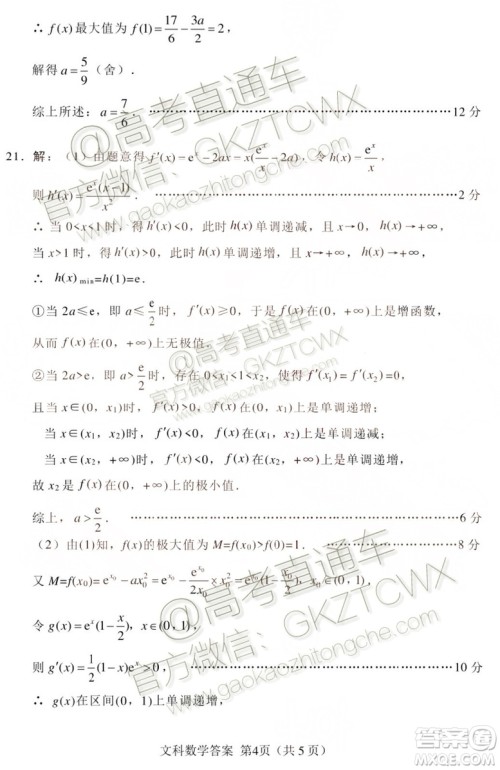 ∴ f(x)最大值为 f(1)=17/6−3a/2=2，
解得 a=5/9（舍）.
综上所述：a=7/6. ……………………………………………… 12 分
21．解：（1）由题意得 f′(x)=eˣ−2ax=x(eˣ/x−2a)，令 h(x)=eˣ/x，
则 h′(x)=eˣ(x−1)/x². ……………………………………………… 2 分
∴ 当 0<x<1 时，得 h′(x)<0，此时 h(x)单调递减，且 x→0，h(x)→+∞，
当 x>1 时，得 h′(x)>0，此时 h(x)单调递增，且 x→+∞，h(x)→+∞，
∴ h(x)min=h(1)=e.
①当 2a≤e，即 a≤e/2 时，f′(x)≥0，于是 f(x)在(0，+∞)上是增函数，
从而 f(x)在(0，+∞)上无极值.
②当 2a>e，即 a>e/2 时，存在 0<x₁<1<x₂，使得 f′(x₁)=f′(x₂)=0，
且当 x∈(0，x₁)时，f′(x)>0，f(x)在(0，x₁)上是单调递增；
当 x∈(x₁，x₂)时，f′(x)<0，f(x)在(x₁，x₂)上是单调递减；
当 x∈(x₂，+∞)时，f′(x)>0，f(x)在(x₂，+∞)上是单调递增，
故 x₂是 f(x)在(0，+∞)上的极小值.
综上，a>e/2. ……………………………………………… 6 分
（2）由(1)知，f(x)的极大值为 M=f(x₀)>f(0)=1. ……………………… 8 分
又 M=f(x₀)=e^x₀−ax₀²=e^x₀−(e^x₀/2x₀)x₀²=e^x₀(1−x₀/2)，
令 g(x)=eˣ(1−x/2)，x∈(0，1)，
则 g′(x)=1/2(1−x)eˣ>0， ……………………………………………… 10 分
∴ g(x)在区间(0，1)上单调递增，
文科数学答案 第4页（共 5 页）
@高考直通车
官方微信：GKZTCWX
www.gaokaozhitongche.com
@高考直通车
官方微信：GKZTCWX
www.gaokaozhitongche.com
答案圈
MXQE.COM